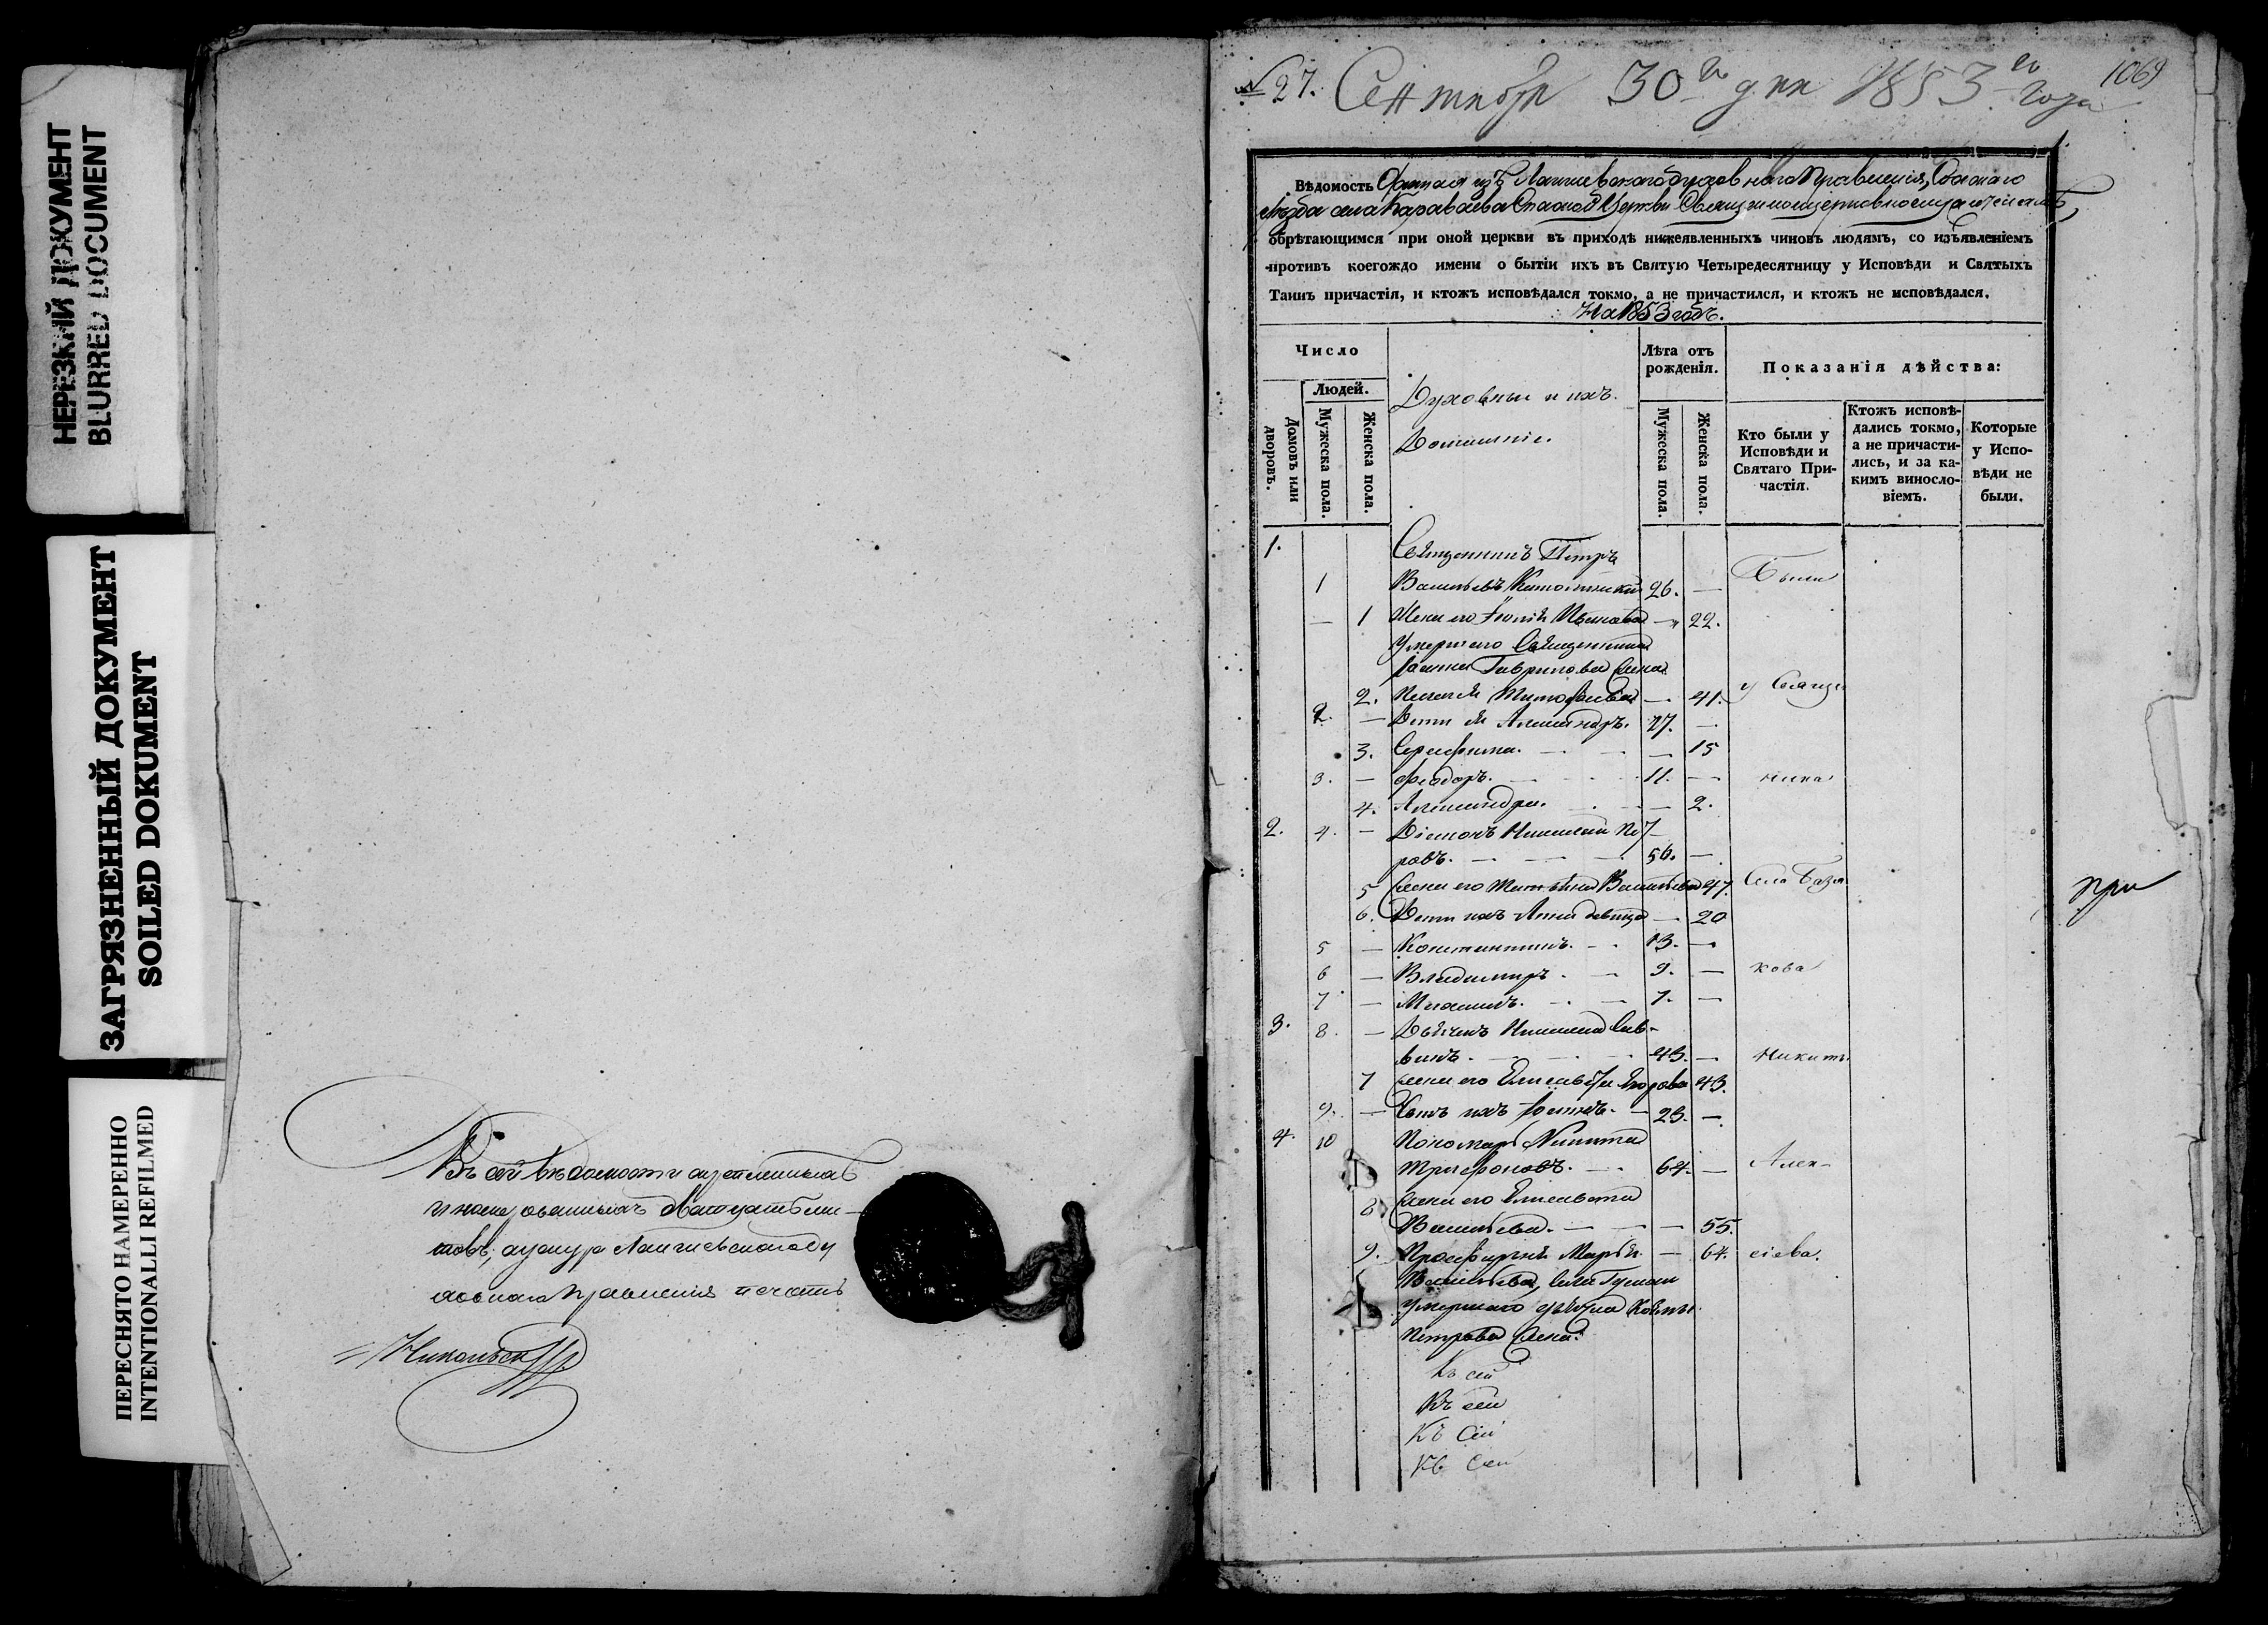 НЕРЕЗКИЙ ДОКУМЕНТ
BLURRED DOCUMENT
ЗАГРЯЗНЕННЫЙ ДОКУМЕНТ
SOILED DOKUMENT
ПЕРЕСНЯТО НАМЕРЕННО
INTENTIONALLI REFILMED
Въ сей вѣдомости
печать
№ 27. Сентября 30го дня 1853го года
1069
Вѣдомость Данная изъ Лаишевскаго духовнаго Правленія, Спаскаго
уѣзда села Караваева Спаской Церкви Священноцерковнослужителямъ,
обрѣтающимся при оной церкви въ приходѣ нижеявленныхъ чиновъ людямъ, со изъявленіемъ
противъ коегождо имени о бытіи ихъ въ Святую Четыредесятницу у Исповѣди и Святыхъ
Таинъ причастія, и ктожъ исповѣдался токмо, а не причастился, и ктожъ не исповѣдался.
На 1853 годъ.
Число
Людей.
Домовъ или дворовъ.
Мужеска пола.
Женска пола.
Духовныи и ихъ
Домашніе.
Лѣта отъ рожденія.
Мужеска пола.
Женска пола.
Показанія дѣйства:
Кто были у Исповѣди и Святаго Причастія.
Ктожъ исповѣдались токмо, а не причастились, и за какимъ винословіемъ.
Которые у Исповѣди не были.
1. Священникъ Петръ
1 Васильевъ 26. — Были
— 1 Жена его — 22.
Умершаго Священника
Іоанна Гаврилова жена
2. Тимофеева — 41. у Свяще
2. — Дети ея Александръ. 17. —
3. Серафима. — 15
3. — Феодоръ. 11. — ника
4. Александра. — 2.
2. 4. — Діаконъ Николай Пет
ровъ. 56. —
5 Жена его Татьяна Васильева 47. Села База
6. Дети ихъ Анна девица — 20
5 — Константинъ. 13. —
6 — Владимиръ. 9. — кова
7 — Михаилъ. 7. —
3. 8. — Дьячекъ Николай Сав-
винъ. 43. — Никиты
7 Жена его Елисавета Егорова 43.
9. — Сынъ ихъ 23. —
4. 10 Пономарь Никита
Трифоновъ. 64. — Алек-
8 Жена его Елисавета
Васильева. — 55.
9. Просфирня Марья — 64. сіева.
Васильева,
умершаго дьячка Козмы
Петрова жена.
Къ сей
Къ сей
Къ Сей
Къ Сей
при